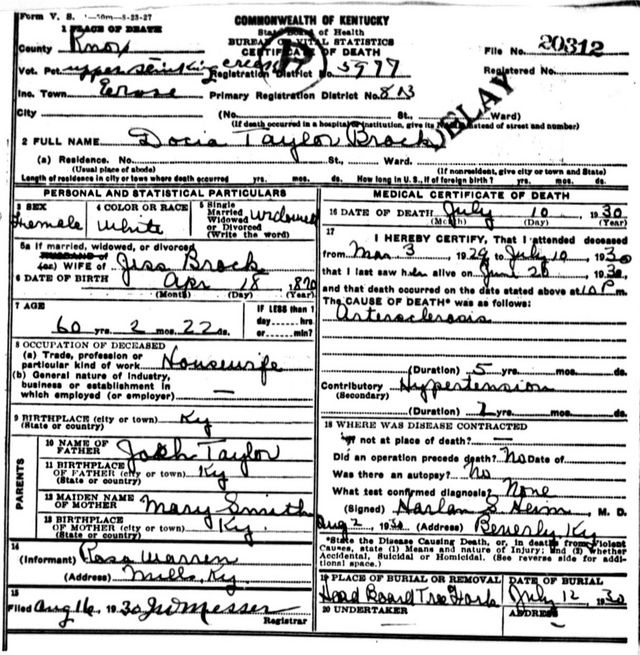 Form V. S. 1-50m-8-23-27
COMMONWEALTH OF KENTUCKY
State Board of Health
BUREAU OF VITAL STATISTICS
CERTIFICATE OF DEATH
1 PLACE OF DEATH
County Knox
File No. 20312
Vot. Pct. upper stinking creek
Registration District No. 5977
Registered No.
DELAY
Inc. Town Erose
Primary Registration District No. 813
City (No. St., Ward)
(If death occurred in a hospital or institution, give its NAME instead of street and number)
2 FULL NAME Docia Taylor Brock
(a) Residence. No. St., Ward.
(Usual place of abode) (If nonresident, give city or town and State)
Length of residence in city or town where death occurred yrs. mos. ds. How long in U. S., if of foreign birth? yrs. mos. ds.
PERSONAL AND STATISTICAL PARTICULARS
3 SEX Female
4 COLOR OR RACE White
5 Single Married Widowed or Divorced (Write the word) Widowed
5a If married, widowed, or divorced
HUSBAND of
(or) WIFE of Jess Brock
6 DATE OF BIRTH Apr 18, 1870
(Month) (Day) (Year)
7 AGE 60 yrs. 2 mos. 22 ds.
IF LESS than 1 day hrs. or min?
8 OCCUPATION OF DECEASED
(a) Trade, profession or particular kind of work Housewife
(b) General nature of industry, business or establishment in which employed (or employer) —
9 BIRTHPLACE (city or town) Ky
(State or country)
PARENTS
10 NAME OF FATHER Josh Taylor
11 BIRTHPLACE OF FATHER (city or town) Ky
(State or country)
12 MAIDEN NAME OF MOTHER Mary Smith
13 BIRTHPLACE OF MOTHER (city or town) Ky.
(State or country)
14
(Informant) Rosa Warren
(Address) Mills, Ky.
15
Filed Aug 16, 1930 Messer
Registrar
MEDICAL CERTIFICATE OF DEATH
16 DATE OF DEATH July 10 1930
(Month) (Day) (Year)
17
I HEREBY CERTIFY, That I attended deceased
from Mar 3, 1929 to July 10, 1930,
that I last saw her alive on June 20, 1930,
and that death occurred on the date stated above at 10 P m.
The CAUSE OF DEATH* was as follows:
Arterosclerosis
(Duration) 5 yrs. mos. ds.
Contributory Hypertension
(Secondary)
(Duration) 2 yrs. mos. ds.
18 WHERE WAS DISEASE CONTRACTED
if not at place of death? —
Did an operation precede death? No Date of
Was there an autopsy? No
What test confirmed diagnosis? None
(Signed) Harlan S. M. D.
Aug 2, 1930 (Address) Beverly Ky
*State the Disease Causing Death, or, in deaths from Violent
Causes, state (1) Means and nature of Injury; and (2) whether
Accidental, Suicidal or Homicidal. (See reverse side for addi-
tional space.)
19 PLACE OF BURIAL OR REMOVAL Head Board Tree Fork
DATE OF BURIAL July 12, 1930
20 UNDERTAKER
ADDRESS